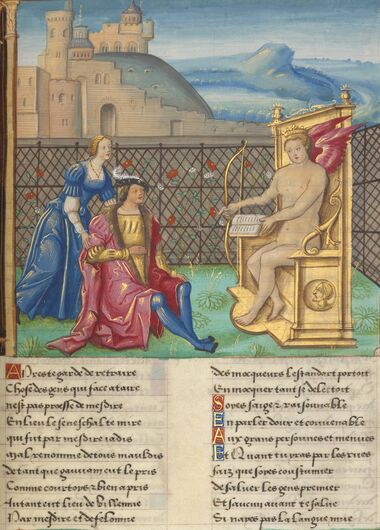 Apres te garde de retraire
Chose des gens qui face ataire
nest pas proesse de mesdire
En lieu le seneschal te mire
qui fut par mesdire iadis
mal renomme de tous maulois
de tant que gauuain eut le pris
Comme courtoys & bien apris
Autant eut lieu de villennie
Par mesdire et de felonne
des mocqueurs lestandart portoit
En mocquer tant se delectoit
Soyes saige & raisonnable
En parler doux et conuenable
Aux grans personnes et menues
Et quant tu yras par les rues
faiz que soyes coustumier
de saluer les gens premier
Et saucun auant te salue
Si nayes pas la langue mue